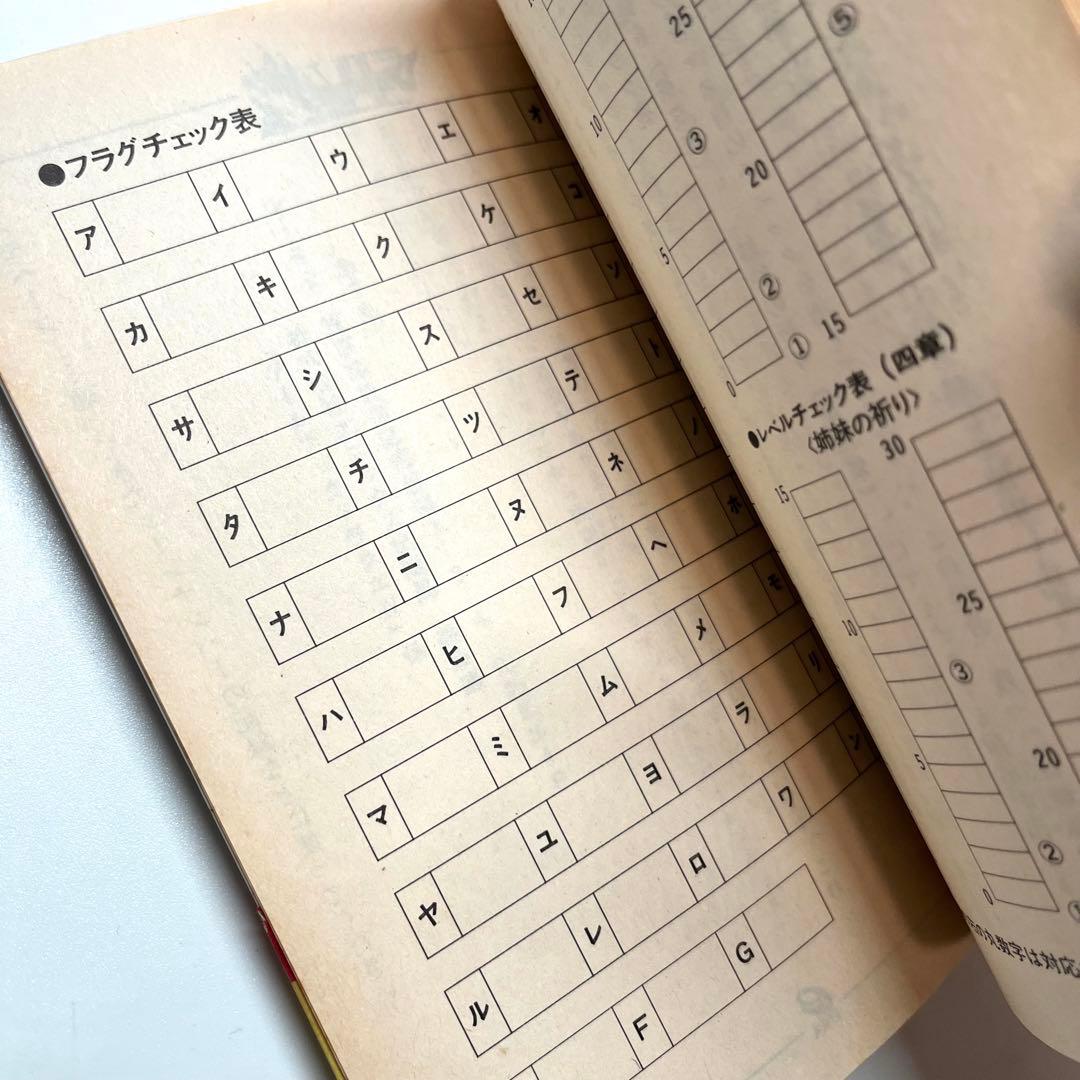 ●フラグチェック表
ア イ ウ エ オ
カ キ ク ケ コ
サ シ ス セ ソ
タ チ ツ テ ト
ナ ニ ヌ ネ ノ
ハ ヒ フ ヘ ホ
マ ミ ム メ モ
ヤ ユ ヨ ラ リ
ル レ ロ ワ ン
F G
25
⑤
10
③
20
5
②
①
15
0
●レベルチェック表(四章)
〈姉妹の祈り〉
30
15
25
10
③
20
5
②
0
数字は対応